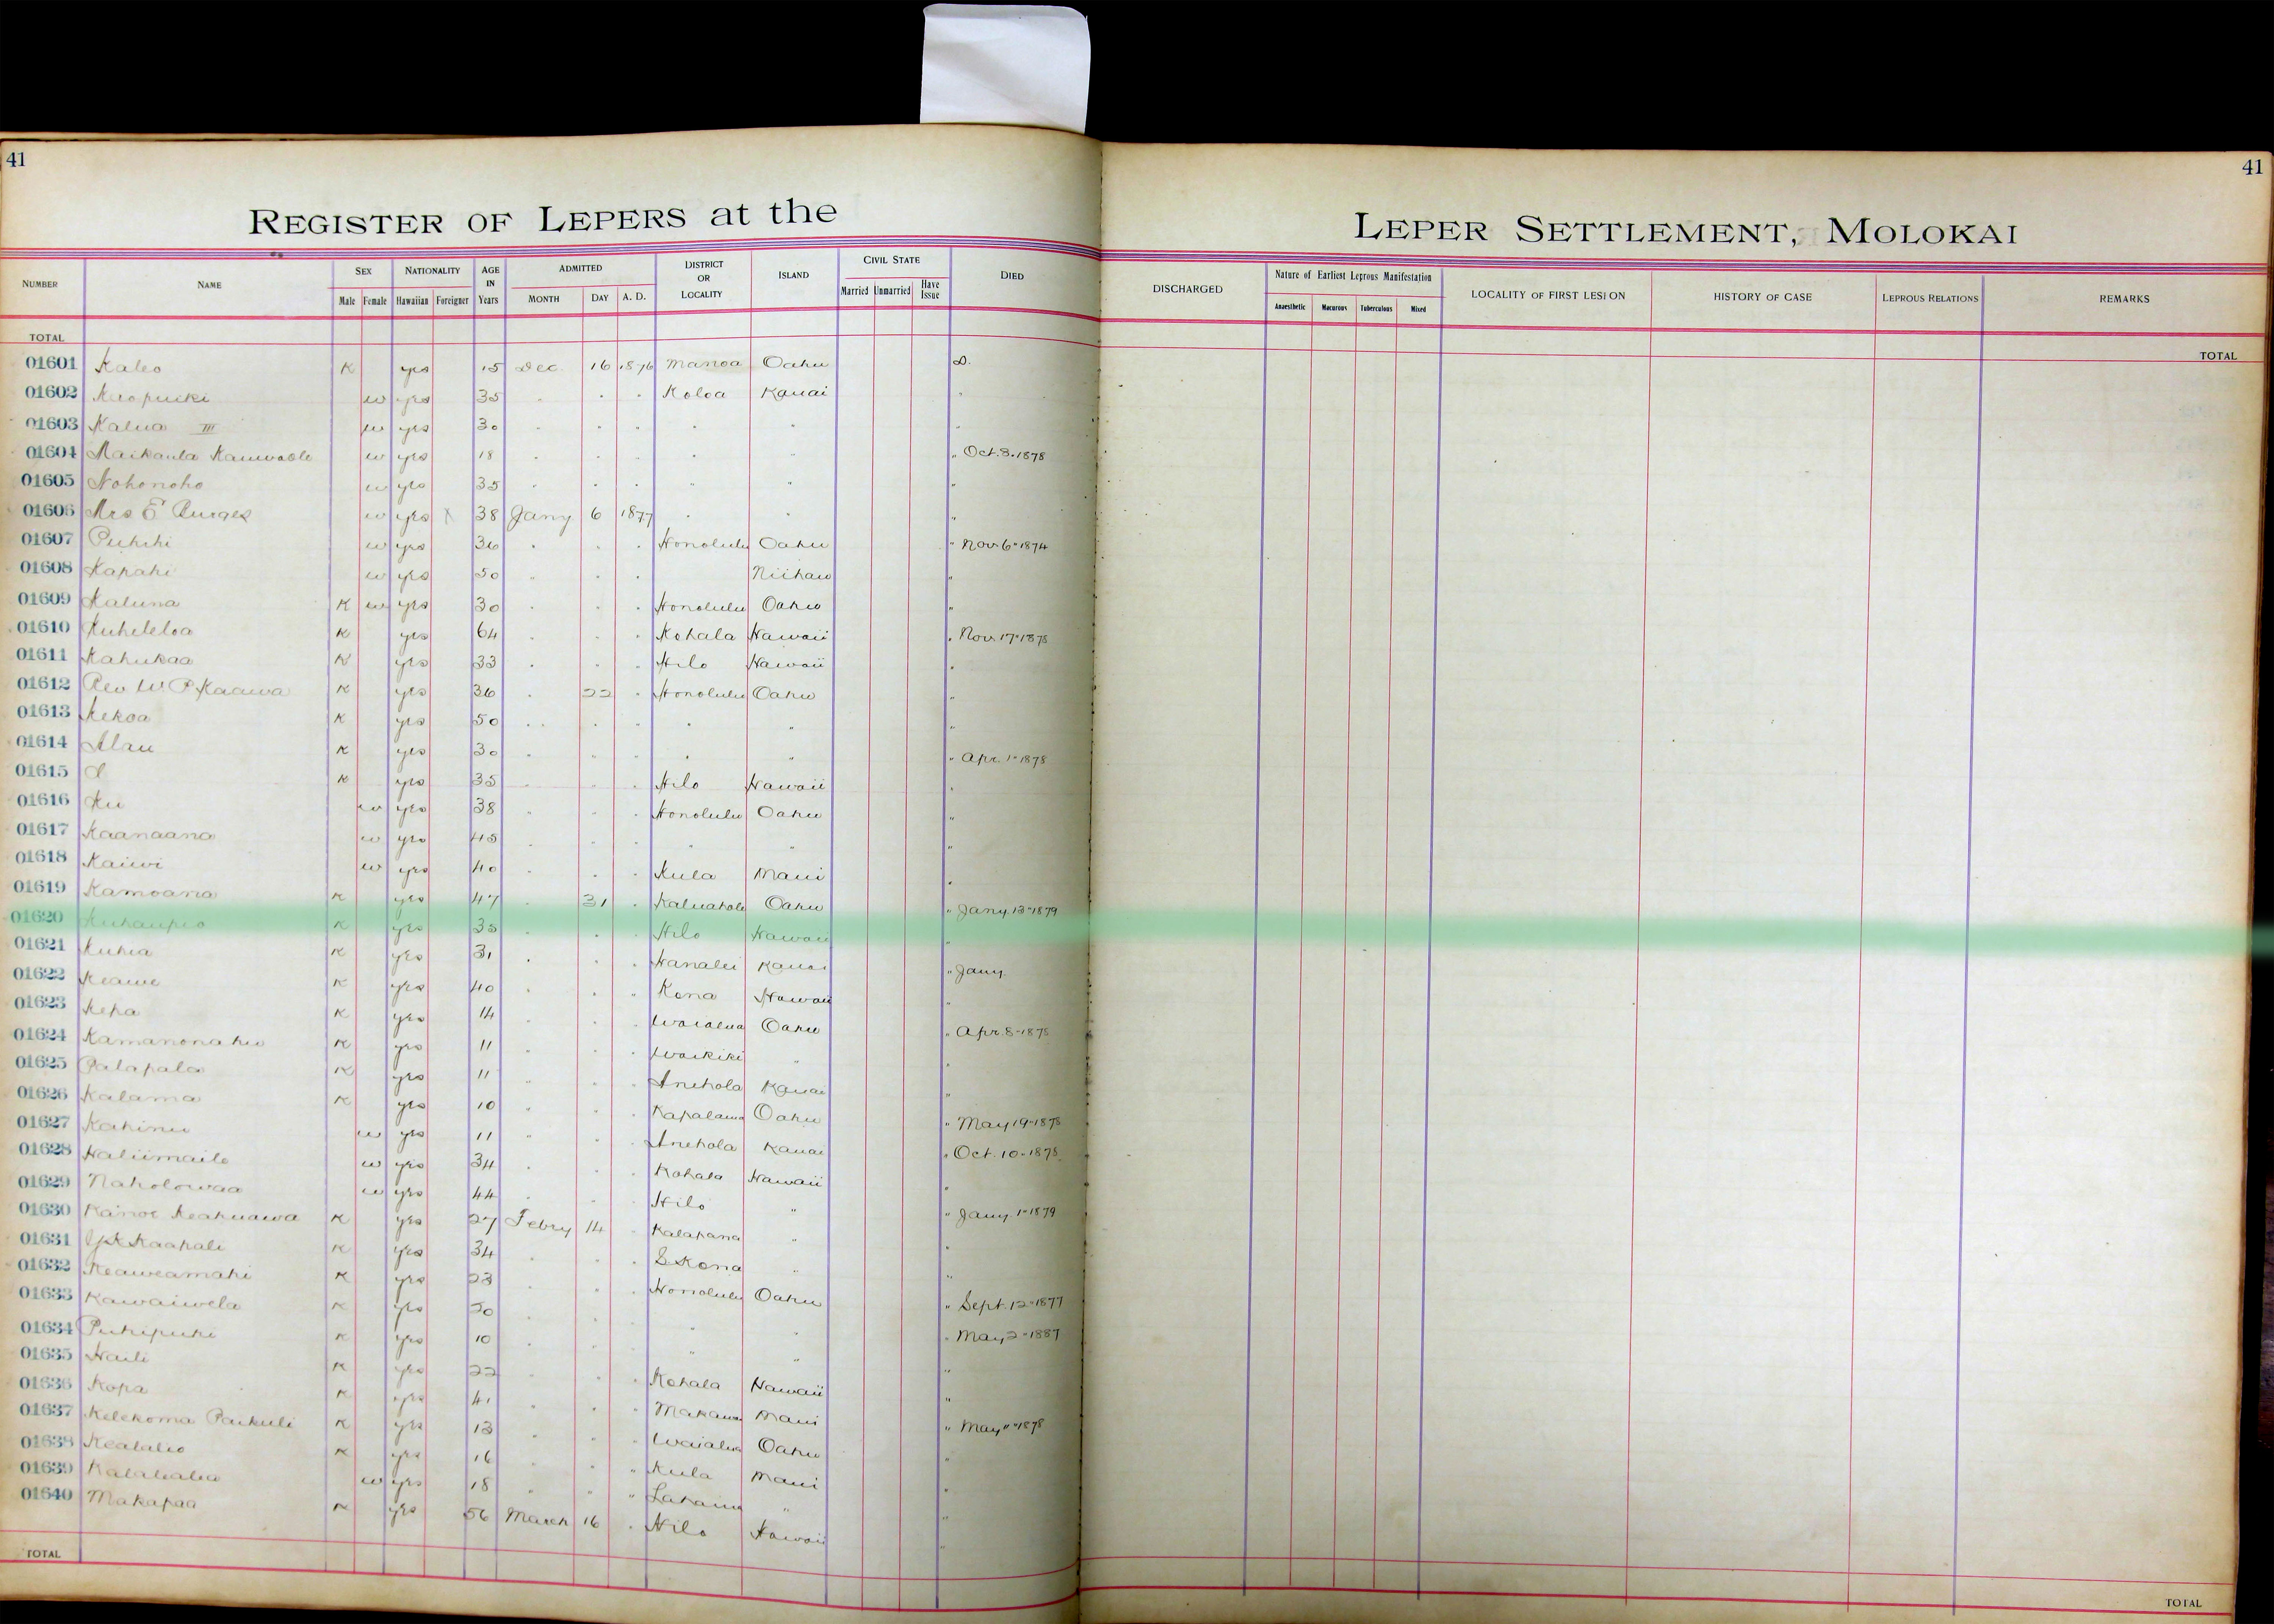 41
41
REGISTER OF LEPERS at the
LEPER SETTLEMENT, MOLOKAI
NUMBER NAME SEX Male Female NATIONALITY Hawaiian Foreigner AGE IN Years ADMITTED MONTH DAY A. D. DISTRICT OR LOCALITY ISLAND CIVIL STATE Married Unmarried Have Issue DIED
DISCHARGED Nature of Earliest Leprous Manifestation Anaesthetic Macurous Tuberculous Mixed LOCALITY OF FIRST LESION HISTORY OF CASE LEPROUS RELATIONS REMARKS
TOTAL
TOTAL
01601 Kaleo K yes 15 Dec. 16 1876 Manoa Oahu D.
01602 w yes 35 " " " Koloa Kauai "
01603 Kalua III w yes 30 " " " " " "
01604 Maikaula w yes 18 " " " " " " Oct. 3. 1878
01605 Nohonoho w yes 35 " " " " " "
01606 Mrs E Burges w yes X 38 Jany 6 1877 " " "
01607 Puhihi w yes 36 " " " Honolulu Oahu " Nov. 6" 1874
01608 Kapahi w yes 50 " " " Niihau "
01609 Kaluna K w yes 30 " " " Honolulu Oahu "
01610 Kuheleloa K yes 64 " " " Kohala Hawaii " Nov. 17" 1878
01611 Kahukaa K yes 33 " " " Hilo Hawaii "
01612 Rev W. P. Kaawa K yes 36 " 22 " Honolulu Oahu "
01613 Kekoa K yes 50 " " " " " "
01614 Alau K yes 30 " " " " " " Apr. 1" 1878
01615 K yes 35 " " " Hilo Hawaii "
01616 Ku w yes 38 " " " Honolulu Oahu "
01617 Kaanaana w yes 45 " " " " " "
01618 Kaiwi w yes 40 " " " Kula Maui "
01619 Kamoana K yes 47 " 31 " Oahu " Jany. 13" 1879
01620 K yes 35 " " " Hilo Hawaii "
01621 Kuhia K yes 31 " " " Hanalei Kauai " Jany.
01622 Keawe K yes 40 " " " Kona Hawaii "
01623 Kepa K yes 14 " " " Waialua Oahu " Apr. 8" 1878
01624 K yes 11 " " " Waikiki " "
01625 Palapala K yes 11 " " " Anehola Kauai "
01626 Kalama K yes 10 " " " Kapalama Oahu " May 19" 1878
01627 Kahinu w yes 11 " " " Anehola Kauai " Oct. 10" 1878
01628 Haliimaile w yes 34 " " " Kohala Hawaii "
01629 Naholowaa w yes 44 " " " Hilo " " Jany. 1" 1879
01630 Kainoe Keakuawa K yes 27 Febry 14 " Kalapana " "
01631 Kaahale K yes 34 " " " S Kona " "
01632 Keaweamahi K yes 23 " " " Honolulu Oahu " Sept. 12" 1877
01633 Kawaiwela K yes " " " " " " May 2" 1887
01634 Puhipuhi K yes 10 " " " " " "
01635 Haili K yes 22 " " " Kohala Hawaii "
01636 Kopa K yes 41 " " " Makawao Maui " May 11" 1878
01637 Kelekoma Paikuli K yes 13 " " " Waialua Oahu "
01638 K yes 16 " " " Kula Maui "
01639 w yes 18 " " " Lahaina " "
01640 Makapaa K yes 56 March 16 " Hilo Hawaii "
TOTAL
TOTAL